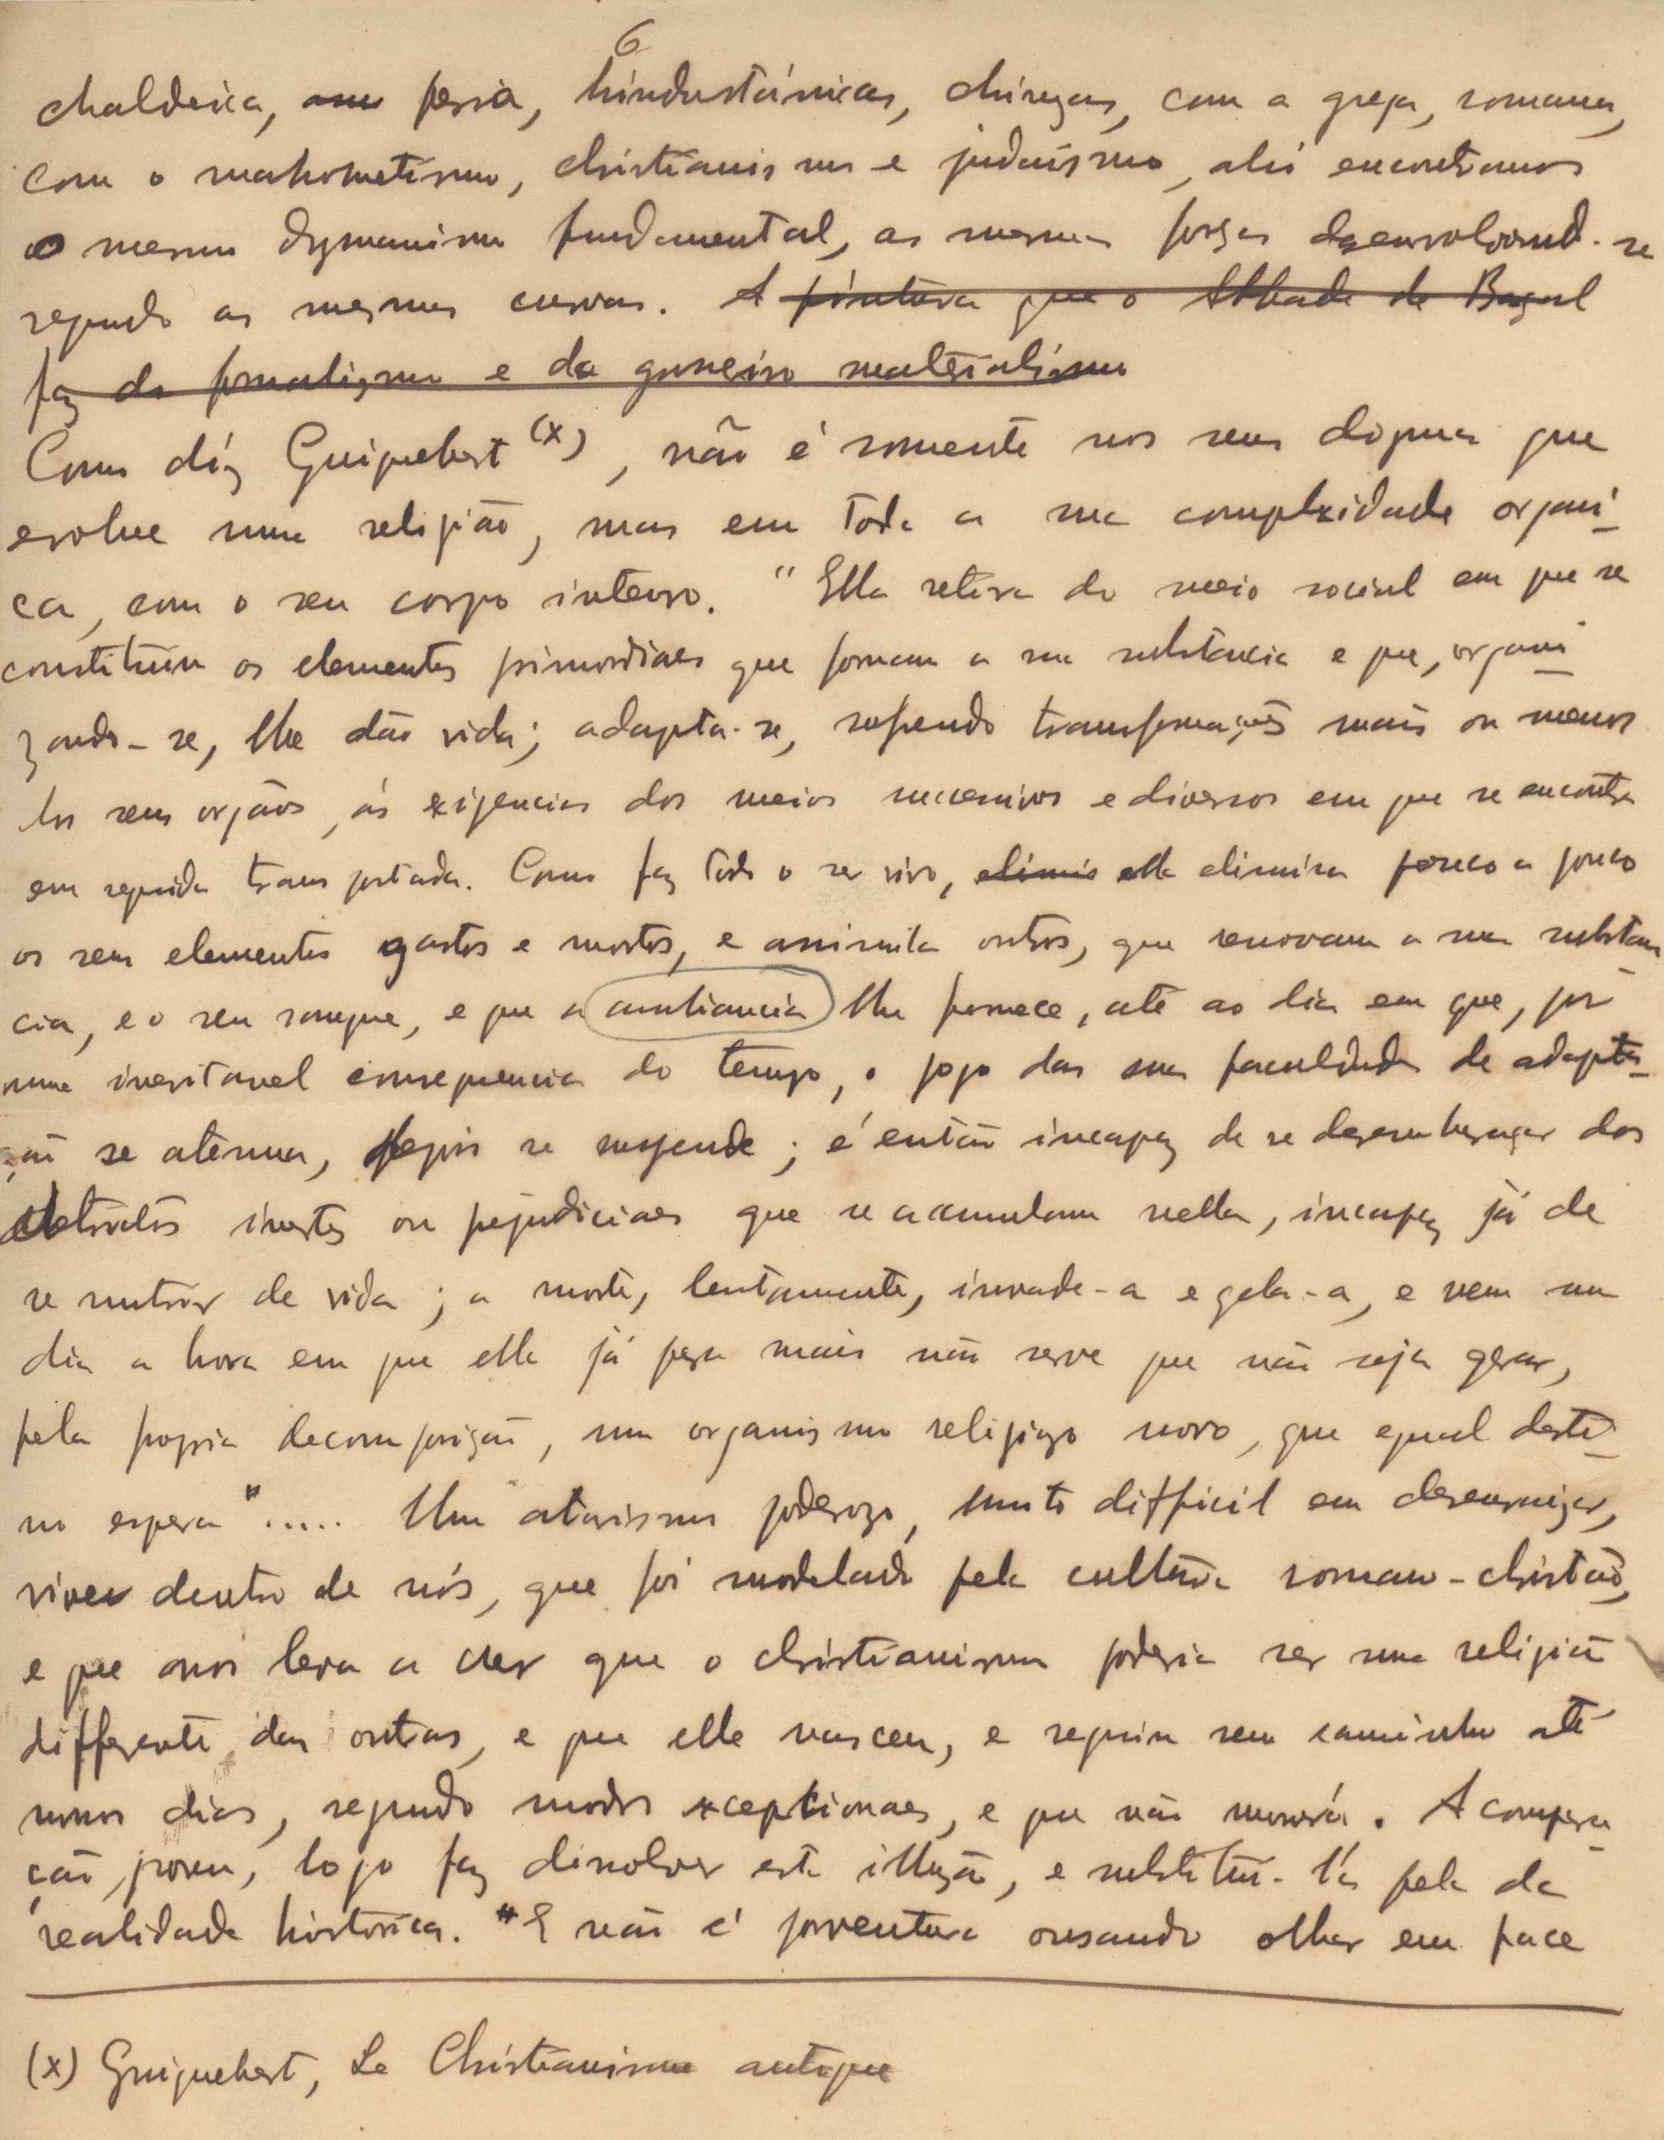 6
chaldeica, persa, hindustánicas, chinezas, com a grega, romana,
com o mahometismo, christianismo e judaismo, ahi encontramos
o mesmo dynamismo fundamental, as mesmas forças desenvolvend-se
segundo as mesmas curvas. A pintura que o Abbade de Baçal
faz do formalismo e do grosseiro materialismo
Como díz Guignebert (x), não é somente nos seus dogmas que
evolve uma religião, mas em toda a sua complexidade organi-
ca, com o seu corpo inteiro. "Ella retira do meio social em que se
constituiu os elementos primordiaes que formam a sua substancia e que, organi-
zando-se, lhe dão vida; adapta-se, soffrendo transformações mais ou menos
seus orgãos, ás exigencias dos meios successivos e diversos em que se encontra
em seguida transportada. Como faz todo o ser vivo, elimis ella elimina pouco a pouco
os seus elementos gastos e mortos, e assimila outros, que renovam a sua substan-
cia, e o seu sangue, e que a ambiancia lhe fornece, até ao dia em que, por
uma inevitavel consequencia do tempo, o jogo das suas faculdades de adapta-
ção se atenua, depois se suspende; é então incapaz de se desembaraçar dos
detritos inertes ou prejudiciaes que se acumulam nella, incapaz já de
se nutrir de vida; a morte, lentamente, invade-a e gela-a, e vem um
dia a hora em que ella já para mais não serve que não seja gerar,
pela propria decomposição, um organismo religioso novo, que egual desti-
no espera"..... Um atavismo poderozo, muito difficil em desenraizar,
vive dentro de nós, que foi modelado pela cultura romano-christã,
e que nos leva a crer que o christianismo poderia ser uma religião
differente das outras, e que elle nasceu, e seguiu seu caminho até
nossos dias, segundo modos excepcionaes, e que não morrerá. A compara-
ção, porem, logo faz dissolver esta illuzão, e substitui-l'a pela da
realidade historica. "E não é porventura ousando olhar em face
(x) Guignebert, Le Christianisme antique